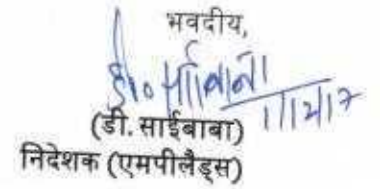 भवदीय,
डी० साईबाबा
1/12/17
(डी. साईबाबा)
निदेशक (एमपीलैड्स)